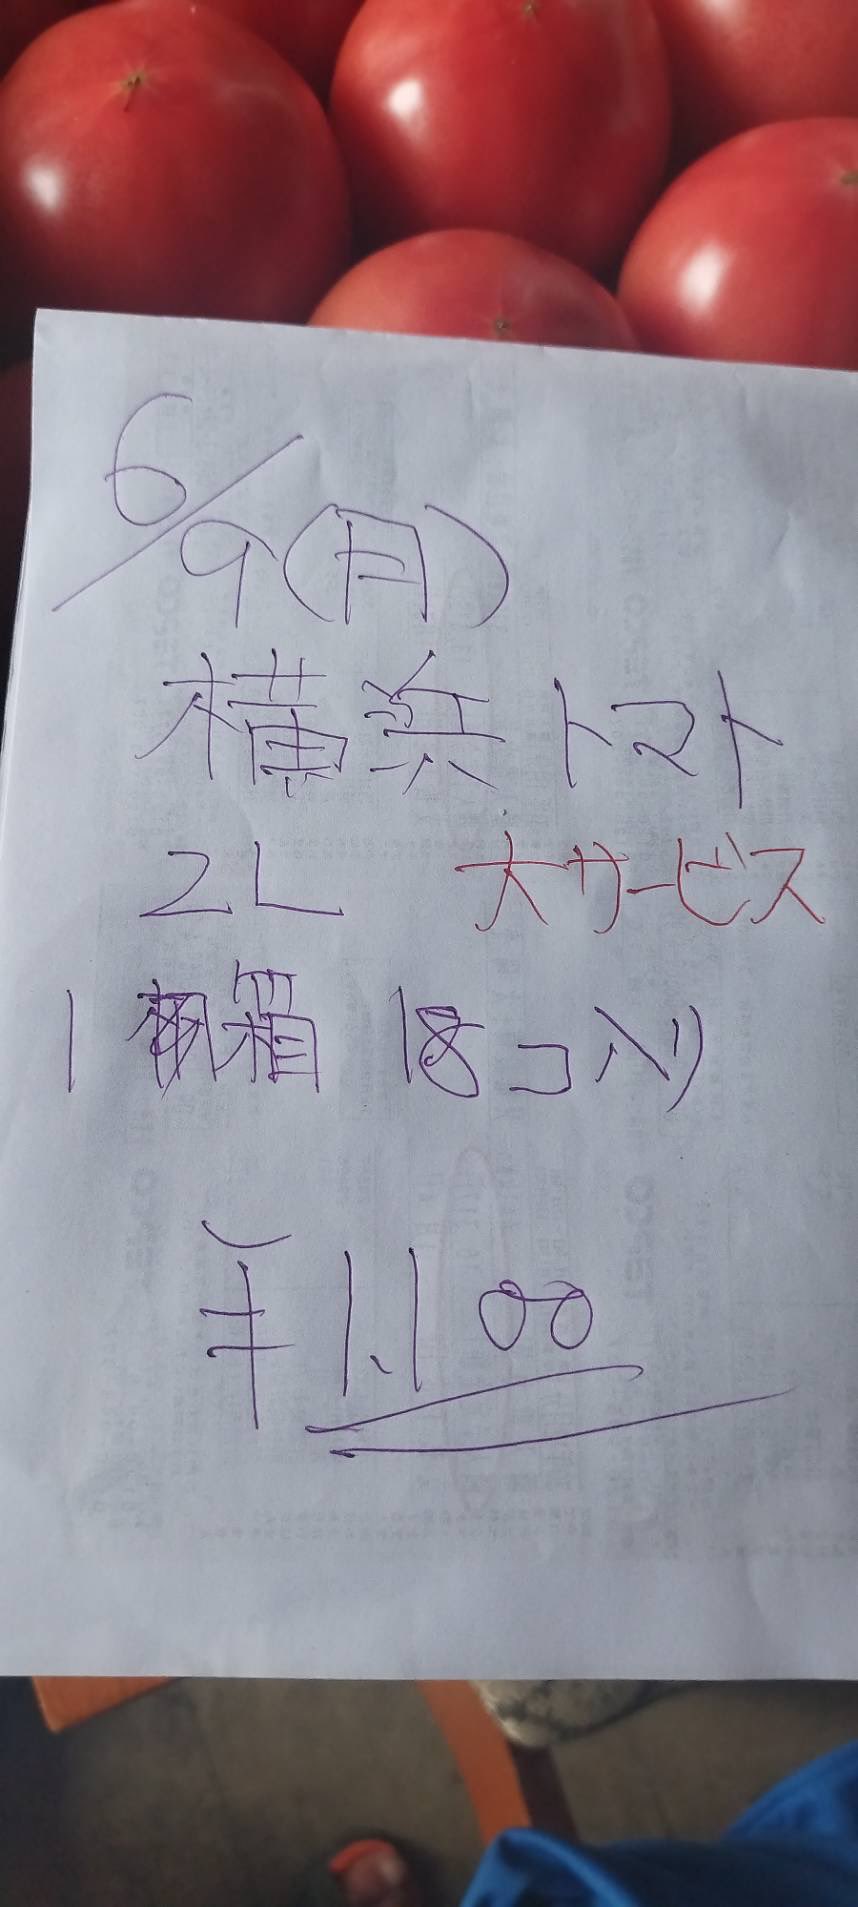 6/9(月)
横浜トマト
2L 大サービス
1 箱 18コ入り
¥1.100